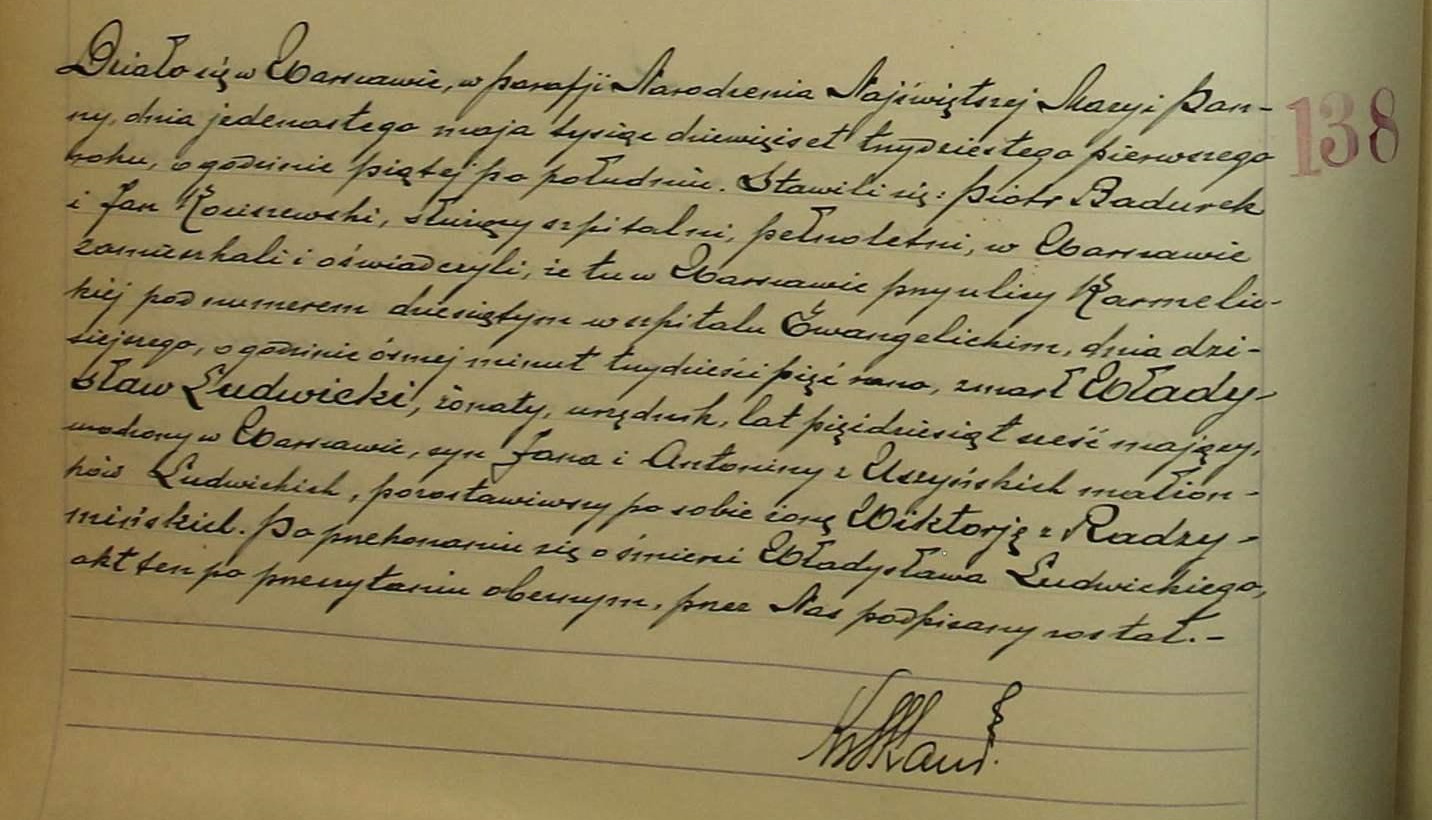 Działo się w Warszawie, w parafji Narodzenia Najświętszej Maryi Pan-
ny, dnia jedenastego maja tysiąc dziewięćset trzydziestego pierwszego
roku, o godzinie piątej po południu. Stawili się: Piotr Badurek
i Jan Kociszewski, służący szpitalni, pełnoletni, w Warszawie
zamieszkali i oświadczyli, że tu w Warszawie przy ulicy Karmelic-
kiej pod numerem dziesiątym w szpitalu Ewangelickim, dnia dzi-
siejszego, o godzinie ósmej minut trzydzieści pięć rano, zmarł Włady-
sław Ludwicki, żonaty, urzędnik, lat pięćdziesiąt sześć mający,
urodzony w Warszawie, syn Jana i Antoniny z Uszyńskich małżon-
ków Ludwickich, pozostawiwszy po sobie żonę Wiktorję z Radzy-
mińskich. Po przekonaniu się o śmierci Władysława Ludwickiego,
akt ten po przeczytaniu obecnym, przez Nas podpisany został.-
138